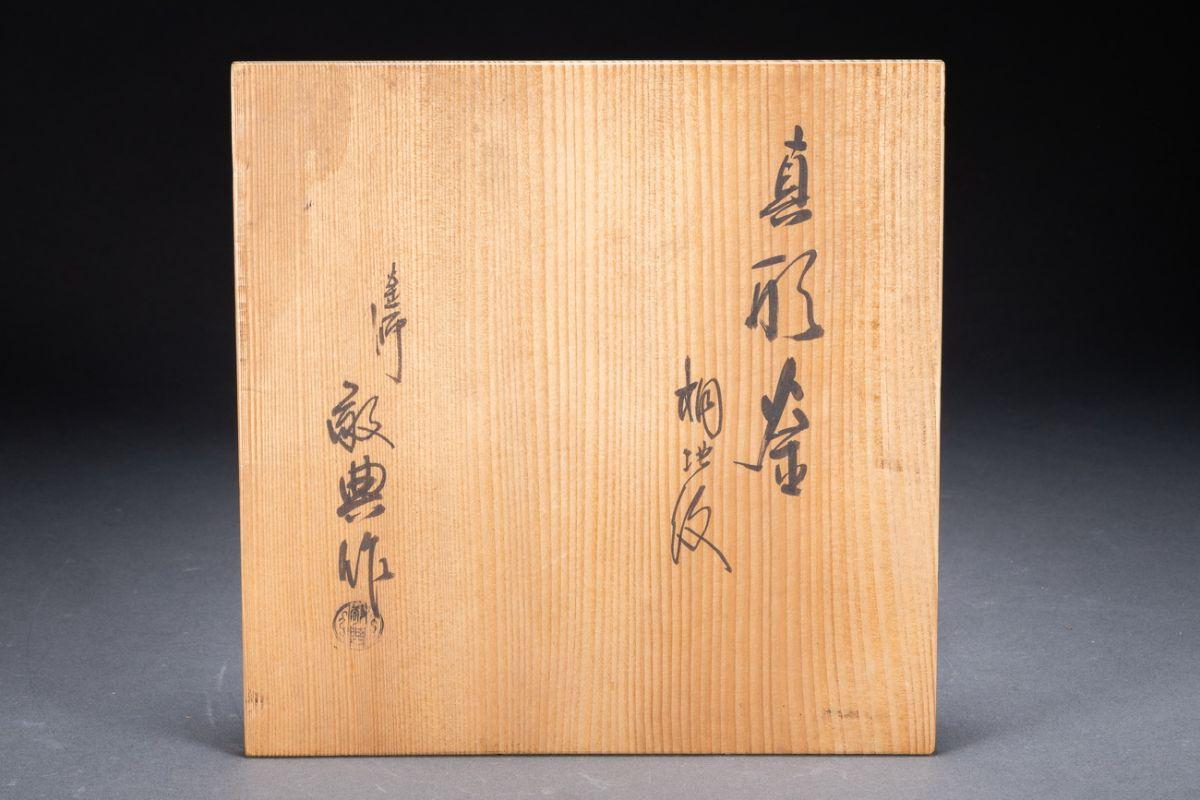 真形釜
桐地紋
釜師
敬典作